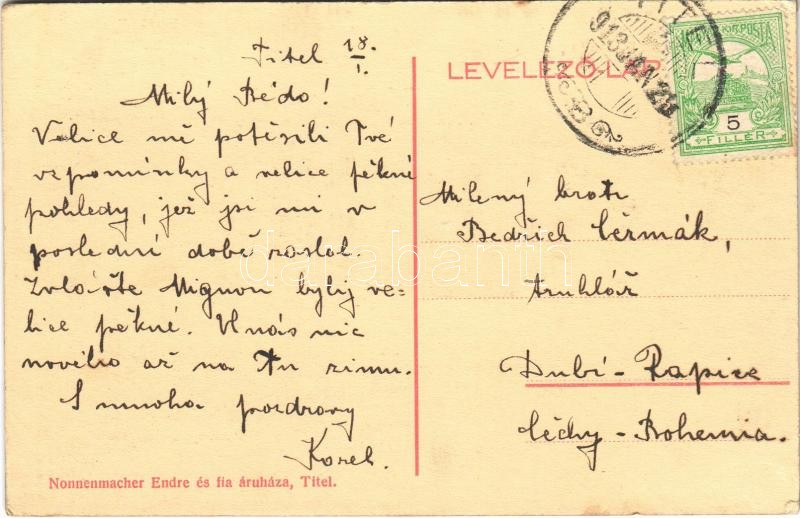 Titel 18./I.
Milý Bédo!
Velice mě potěšili Tvé
vzpomínky a velice pěkné
pohledy, jež jsi mi v
poslední době zaslal.
Zvláště Mignon byly ve-
lice pěkné. U nás nic
nového až na Tu zimu.
S mnoha pozdravy
Karel.
Nonnenmacher Endre és fia áruháza, Titel.
LEVELEZŐ-LAP
TITEL
913 JAN 20
MAGYAR KIR. POSTA
5
FILLÉR
Milený bratr
Bedřich Čermák,
truhlář
Dubí-Rapice
Čechy-Bohemia.
darabanth